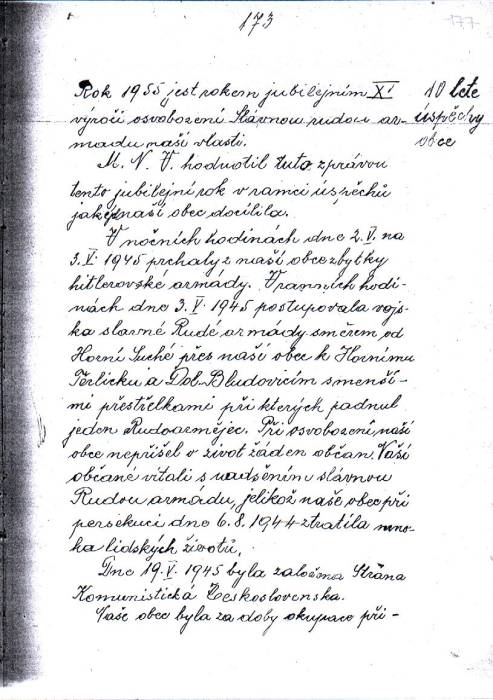 173
177
Rok 1955 jest rokem jubilejním X!
výročí osvobození Slávnou rudou ar-
madu naší vlasti.
10 leté
úspěchy
obce
M. N. V. hodnotil tuto zprávou
tento jubilejní rok v ramci úspěchů
jaké naší obec docílila.
V nočních hodinách dne 2. V. na
3. V. 1945 prchaly z naší obce zbytky
hitlerovské armády. V ranních hodi-
nách dne 3. V. 1945 postupovala vojs-
ka slavné Rudé armády směrem od
Horní Suché přes naší obec k Hornímu
Těrlicku a Dol. Bludovicím s menší-
mi přestřelkami při kterých padnul
jeden Rudoarmějec. Při osvobození naší
obce nepřišel v život žáden občan. Naší
občané vítali s nadšením slávnou
Rudou armádu, jelikož naše obec při
persekuci dne 6. 8. 1944 ztratila mno-
ha lidských životů.
Dne 19. V. 1945 byla založena Strana
Komunistická Československa.
Naše obec byla za doby okupace při-